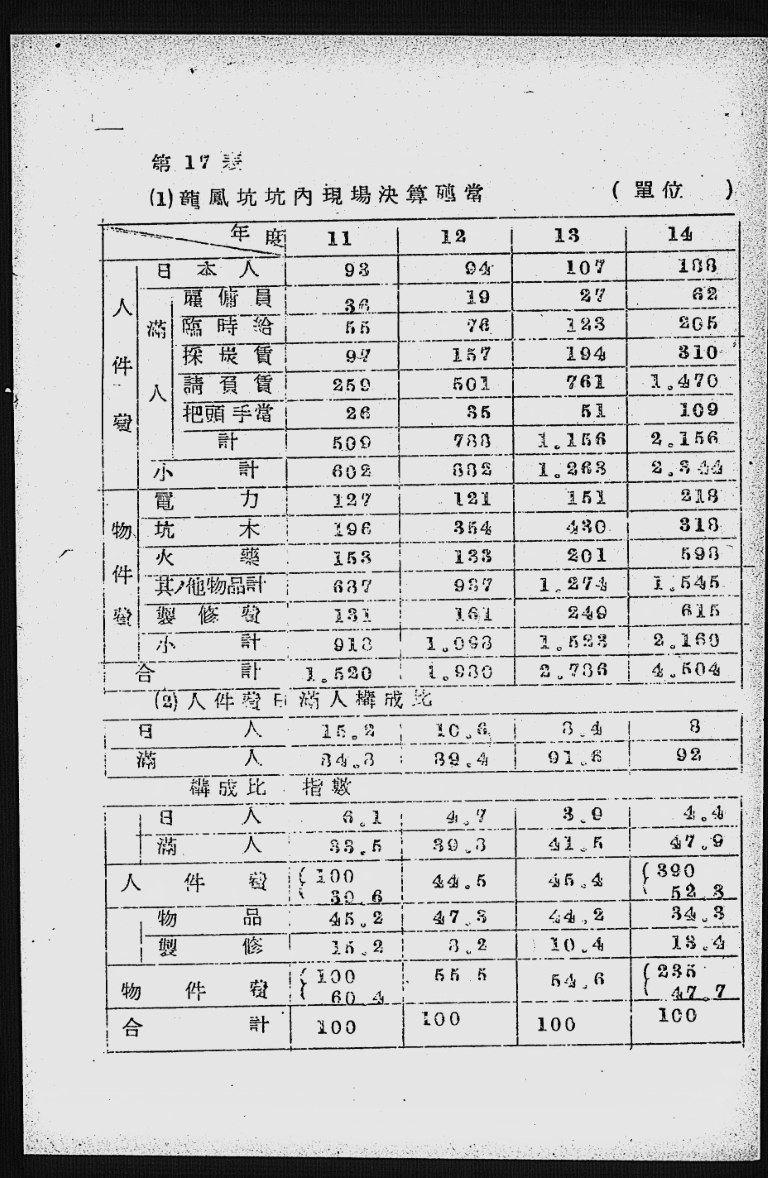 第 17 表
(1) 龍鳳坑坑內現場決算噸當 (單位 )
年度 11 12 13 14
人件費
日本人 93 94 107 188
滿人
雇傭員 36 19 27 62
臨時給 55 76 123 205
採炭賃 97 157 194 310
請負賃 259 501 761 1.470
把頭手當 26 35 51 109
計 509 788 1.156 2.156
小計 602 882 1.263 2.344
物件費
電力 127 121 151 218
坑木 196 354 430 318
火藥 153 133 201 598
其ノ他物品計 687 937 1.274 1.545
製修費 131 161 249 615
小計 918 1.098 1.523 2.160
合計 1.520 1.980 2.786 4.504
(2) 人件費日滿人構成比
日人 15.2 10.6 8.4 8
滿人 84.8 89.4 91.6 92
構成比 指數
日人 6.1 4.7 3.9 4.4
滿人 33.5 39.8 41.5 47.9
人件費 100 39.6 44.5 45.4 390 52.3
物品 45.2 47.3 44.2 34.3
製修 15.2 8.2 10.4 13.4
物件費 100 60.4 55 5 54.6 235 47.7
合計 100 100 100 100